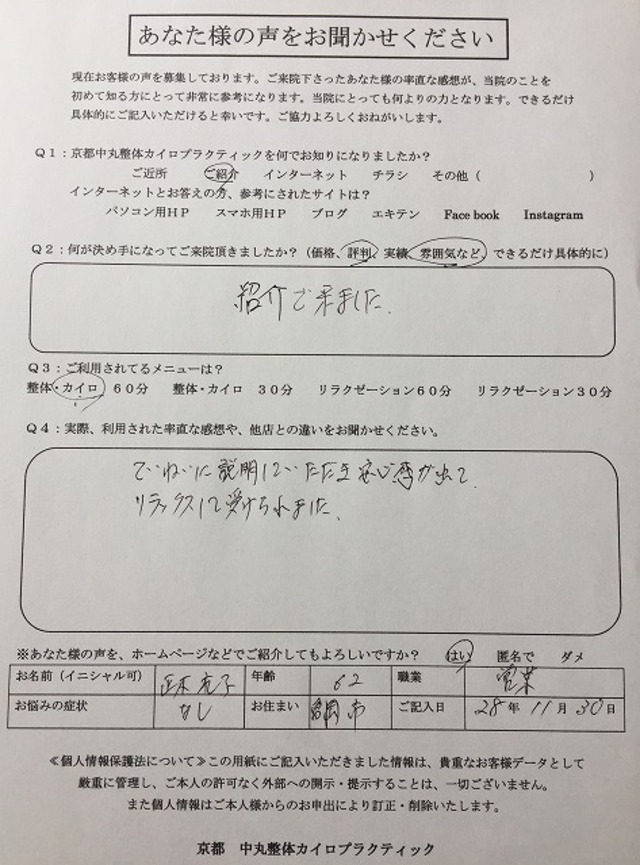 あなた様の声をお聞かせください
現在お客様の声を募集しております。ご来院下さったあなた様の率直な感想が、当院のことを
初めて知る方にとって非常に参考になります。当院にとっても何よりの力となります。できるだけ
具体的にご記入いただけると幸いです。ご協力よろしくおねがいします。
Q1:京都中丸整体カイロプラクティックを何でお知りになりましたか?
ご近所 ご紹介 インターネット チラシ その他( )
インターネットとお答えの方、参考にされたサイトは?
パソコン用HP スマホ用HP ブログ エキテン Face book Instagram
Q2:何が決め手になってご来院頂きましたか?(価格、評判、実績、雰囲気など、できるだけ具体的に)
紹介で来ました.
Q3:ご利用されてるメニューは?
整体・カイロ 60分 整体・カイロ 30分 リラクゼーション60分 リラクゼーション30分
Q4:実際、利用された率直な感想や、他店との違いをお聞かせください。
ていねいに説明していただき安心感が出て
リラックスして受けられました、
※あなた様の声を、ホームページなどでご紹介してもよろしいですか? はい 匿名で ダメ
お名前(イニシャル可) 子 年齢 62 職業 営業
お悩みの症状 なし お住まい 市 ご記入日 28年 11月 30日
≪個人情報保護法について≫この用紙にご記入いただきました情報は、貴重なお客様データとして
厳重に管理し、ご本人の許可なく外部への開示・提示することは、一切ございません。
また個人情報はご本人様からのお申出により訂正・削除いたします。
京都 中丸整体カイロプラクティック